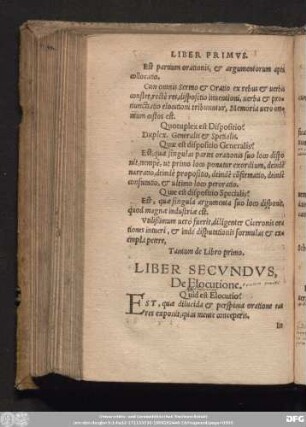 LIBER PRIMVS.
Est partium orationis, & argumentorum apta
collocatio.
Cùm omnis Sermo & Oratio ex rebus & verbis
constet, recté res, dispositio inventioni, verba & pro-
nunctiatio elocutioni tribuuntur, Memoria vero om-
nium custos est.
Quotuplex est Dispositio?
Duplex. Generalis & Specialis.
Quæ est dispositio Generalis?
Est, quæ singulas partes orationis suo loco dispo-
nit, nempè, ut primo loco ponatur exordium, deinde
narratio, deindè propositio, deindè cõfirmatio, deindè
confutatio, & ultimo loco peroratio.
Quæ est dispositio Specialis?
Est, quæ singula argumenta suo loco disponit,
quod magnæ industriæ est.
Vtilissimum verò fuerit, diligenter Ciceronis ora-
tiones intueri, & inde disputationis formulas & ex-
empla petere.
Tantum de Libro primo.
LIBER SECVNDVS,
De Elocutione.
Quid est Elocutio?
EST, quæ dilucida & perspicua oratione ea
res exponit, quas mens conceperit.
In